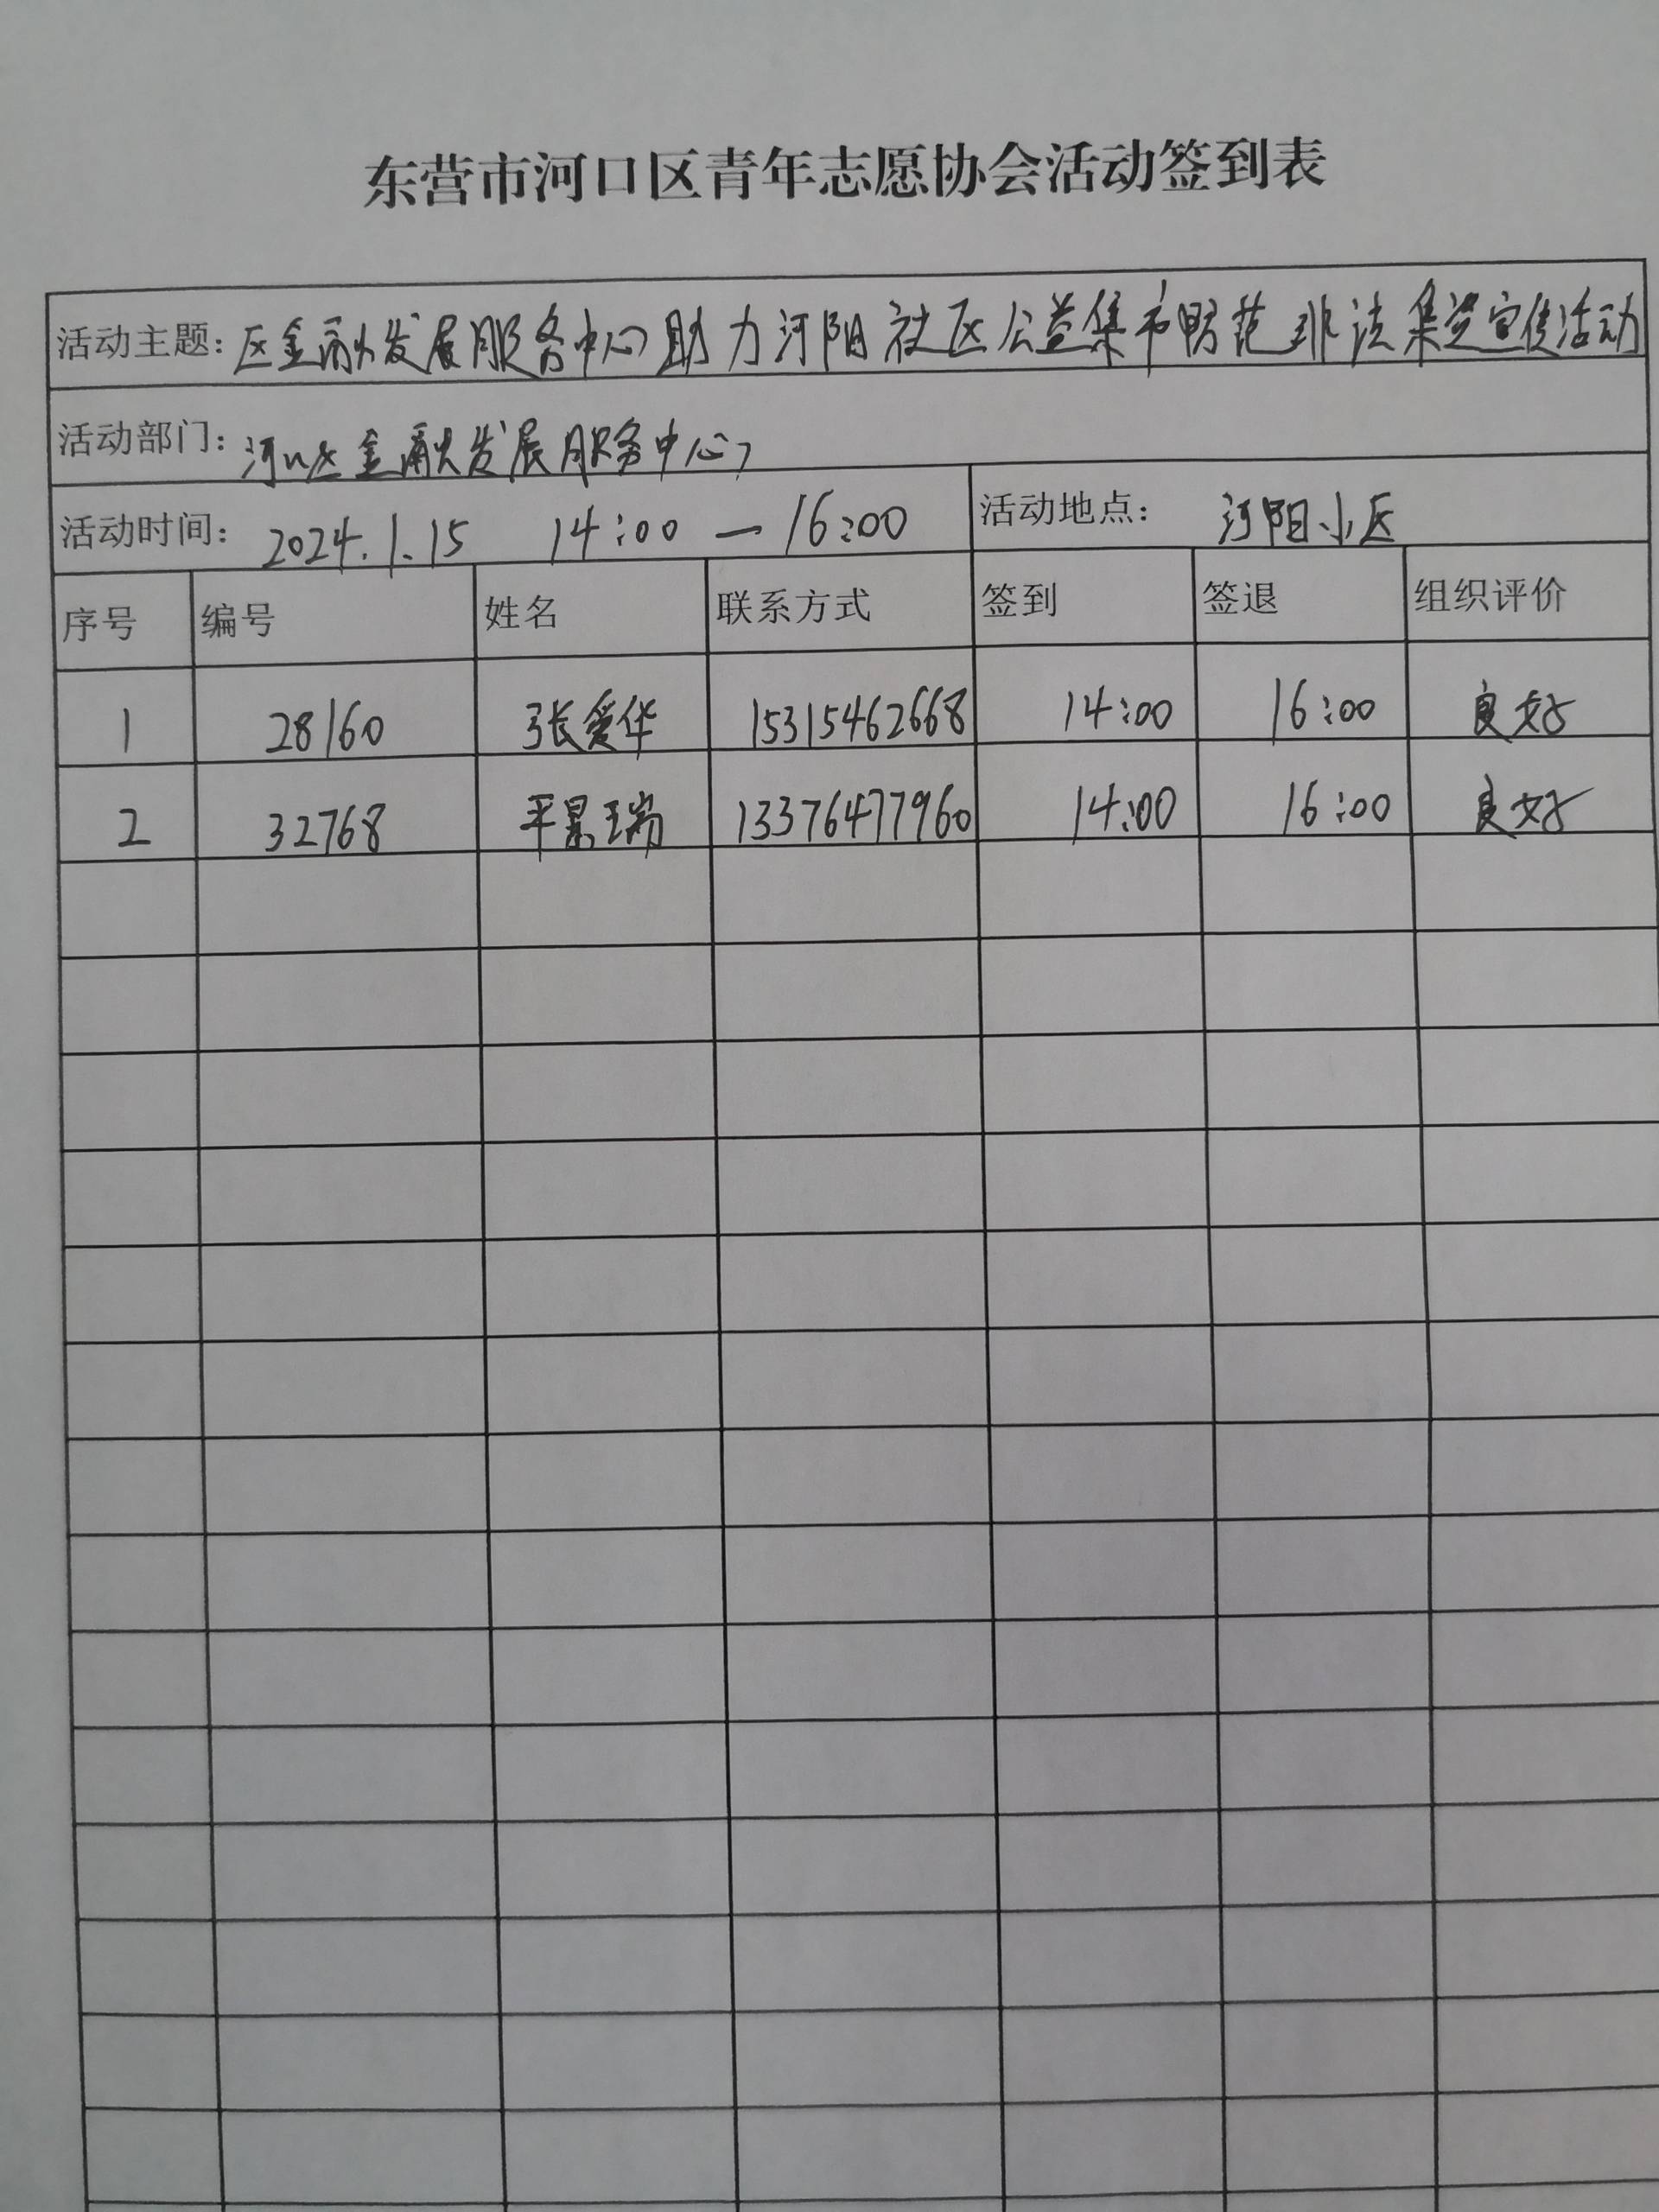 东营市河口区青年志愿协会活动签到表
活动主题：区金融发展服务中心助力河阳社区公益集市防范非法集资宣传活动
活动部门：河口区金融发展服务中心
活动时间：2024.1.15 14:00 — 16:00 活动地点：河阳小区
序号 编号 姓名 联系方式 签到 签退 组织评价
1 28160 张爱华 15315462668 14:00 16:00 良好
2 32768 平景瑞 13376477960 14:00 16:00 良好